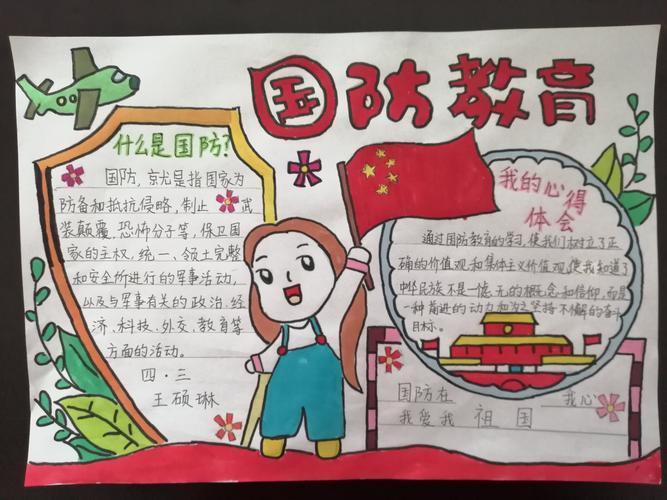 国防教育
什么是国防?
国防,就是指国家为
防备和抵抗侵略,制止武
装颠覆,恐怖分子等,保卫国
家的主权,统一、领土完整
和安全所进行的军事活动,
以及与军事有关的政治,经
济,科技、外交、教育等
方面的活动。
四·三
王硕琳
我的心得
体会
通过国防教育的学习,使我们树立了正
确的价值观和集体主义价值观,使我知道了
中华民族不是一种无的概念和信仰,而是
一种前进的动力和为之坚持不懈的奋斗
目标。
国防在 我心
我爱我 祖国